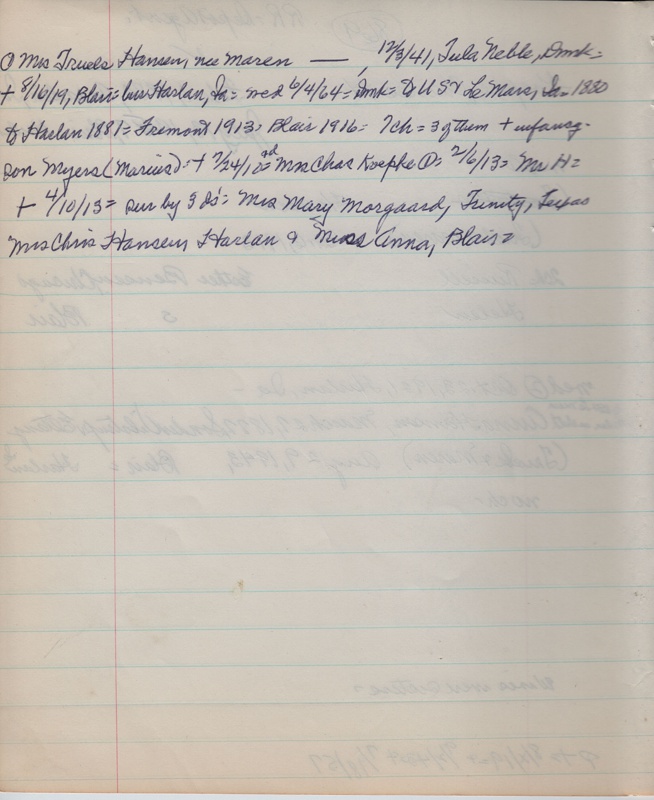 ① Mrs Truels Hansen, nee Maren —, 12/3/41, Tula Neble, Dmk=
+ 8/16/19, Blair= bur Harlan, Ia= med 6/4/64= Dmk= to USA Le Mars, Ia= 1880
to Harlan 1881= Fremont 1913= Blair 1916= 7ch= 3 of them + infancy-
son Myers (Marius)= + 7/24/10= Mrs Chas Koepke ①= 2/6/13= Mr H=
+ 4/10/13= sur by 3 ds'= Mrs Mary Morgaard, Trinity, Texas
Mrs Chris Hansen Harlan & Miss Anna, Blair=